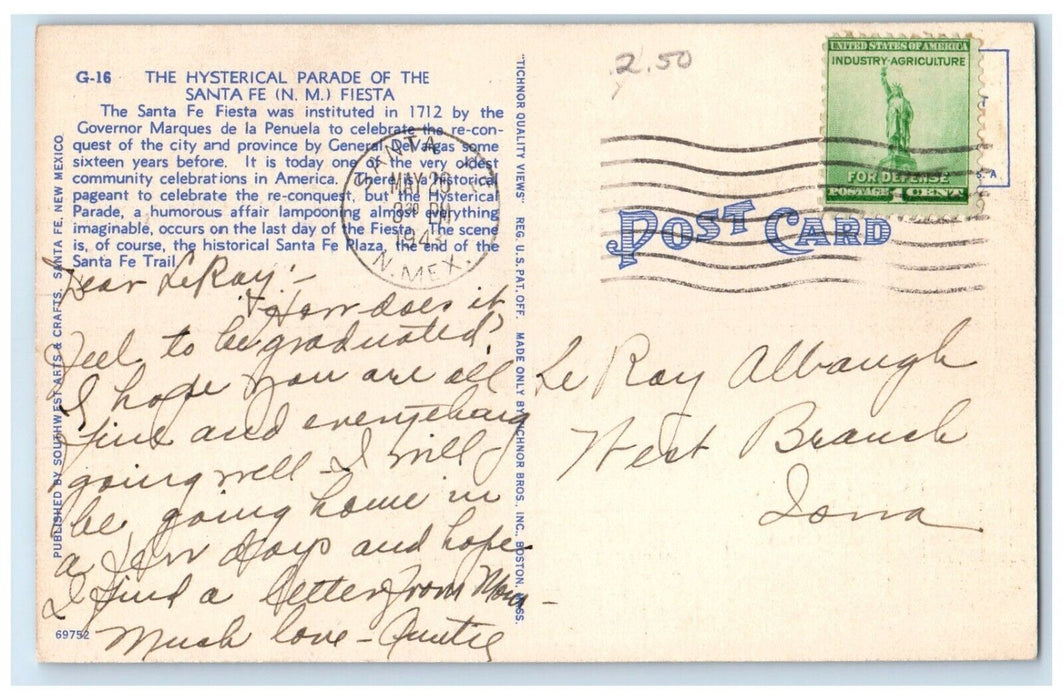 G-16 THE HYSTERICAL PARADE OF THE
SANTA FE (N. M.) FIESTA
The Santa Fe Fiesta was instituted in 1712 by the
Governor Marques de la Penuela to celebrate the re-con-
quest of the city and province by General DeVargas some
sixteen years before. It is today one of the very oldest
community celebrations in America. There is a historical
pageant to celebrate the re-conquest, but the Hysterical
Parade, a humorous affair lampooning almost everything
imaginable, occurs on the last day of the Fiesta. The scene
is, of course, the historical Santa Fe Plaza, the end of the
Santa Fe Trail.
Dear LeRay:-
How does it
feel to be graduated?
I hope you are all
fine and everything
going well - I will
be going home in
a few days and hope
I find a letter from Mom -
Much love - Auntie
69752
PUBLISHED BY SOUTHWEST ARTS & CRAFTS. SANTA FE, NEW MEXICO
"TICHNOR QUALITY VIEWS" REG. U. S. PAT. OFF. MADE ONLY BY TICHNOR BROS., INC., BOSTON, MASS.
SANTA
MAY 26
8 30 PM
194
N. MEX.
2.50
UNITED STATES OF AMERICA
INDUSTRY·AGRICULTURE
FOR DEFENSE
POSTAGE 1 CENT
S. A
POST CARD
Le Ray Albaugh
West Branch
Iowa